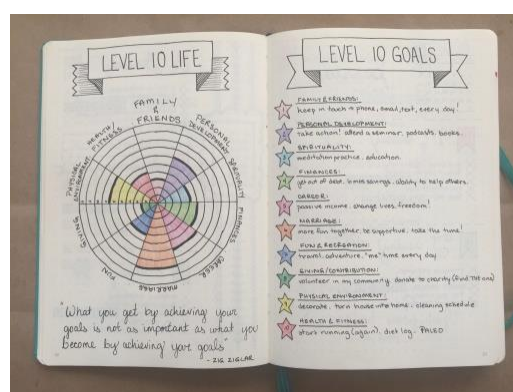 LEVEL 10 LIFE
FAMILY
&
FRIENDS
PERSONAL
DEVELOPMENT
SPIRITUALITY
FINANCES
CAREER
MARRIAGE
FUN
GIVING
PHYSICAL
ENVIRONMENT
HEALTH/
FITNESS
"What you get by achieving your
goals is not as important as what you
become by achieving your goals"
- ZIG ZIGLAR
LEVEL 10 GOALS
FAMILY & FRIENDS:
keep in touch → phone, email, text, every day!
PERSONAL DEVELOPMENT:
take action! attend a seminar, podcasts, books.
SPIRITUALITY:
meditation practice, education.
FINANCES:
get out of debt, savings, ability to help others.
CAREER:
passive income, change lives, freedom!
MARRIAGE:
more fun together, be supportive, take the time!
FUN & RECREATION:
travel, adventure, "me" time every day
GIVING/CONTRIBUTION:
volunteer in my community, donate to charity (find the one)
PHYSICAL ENVIRONMENT:
decorate, turn house into home, cleaning schedule
HEALTH & FITNESS:
start running (again), diet log - PALEO